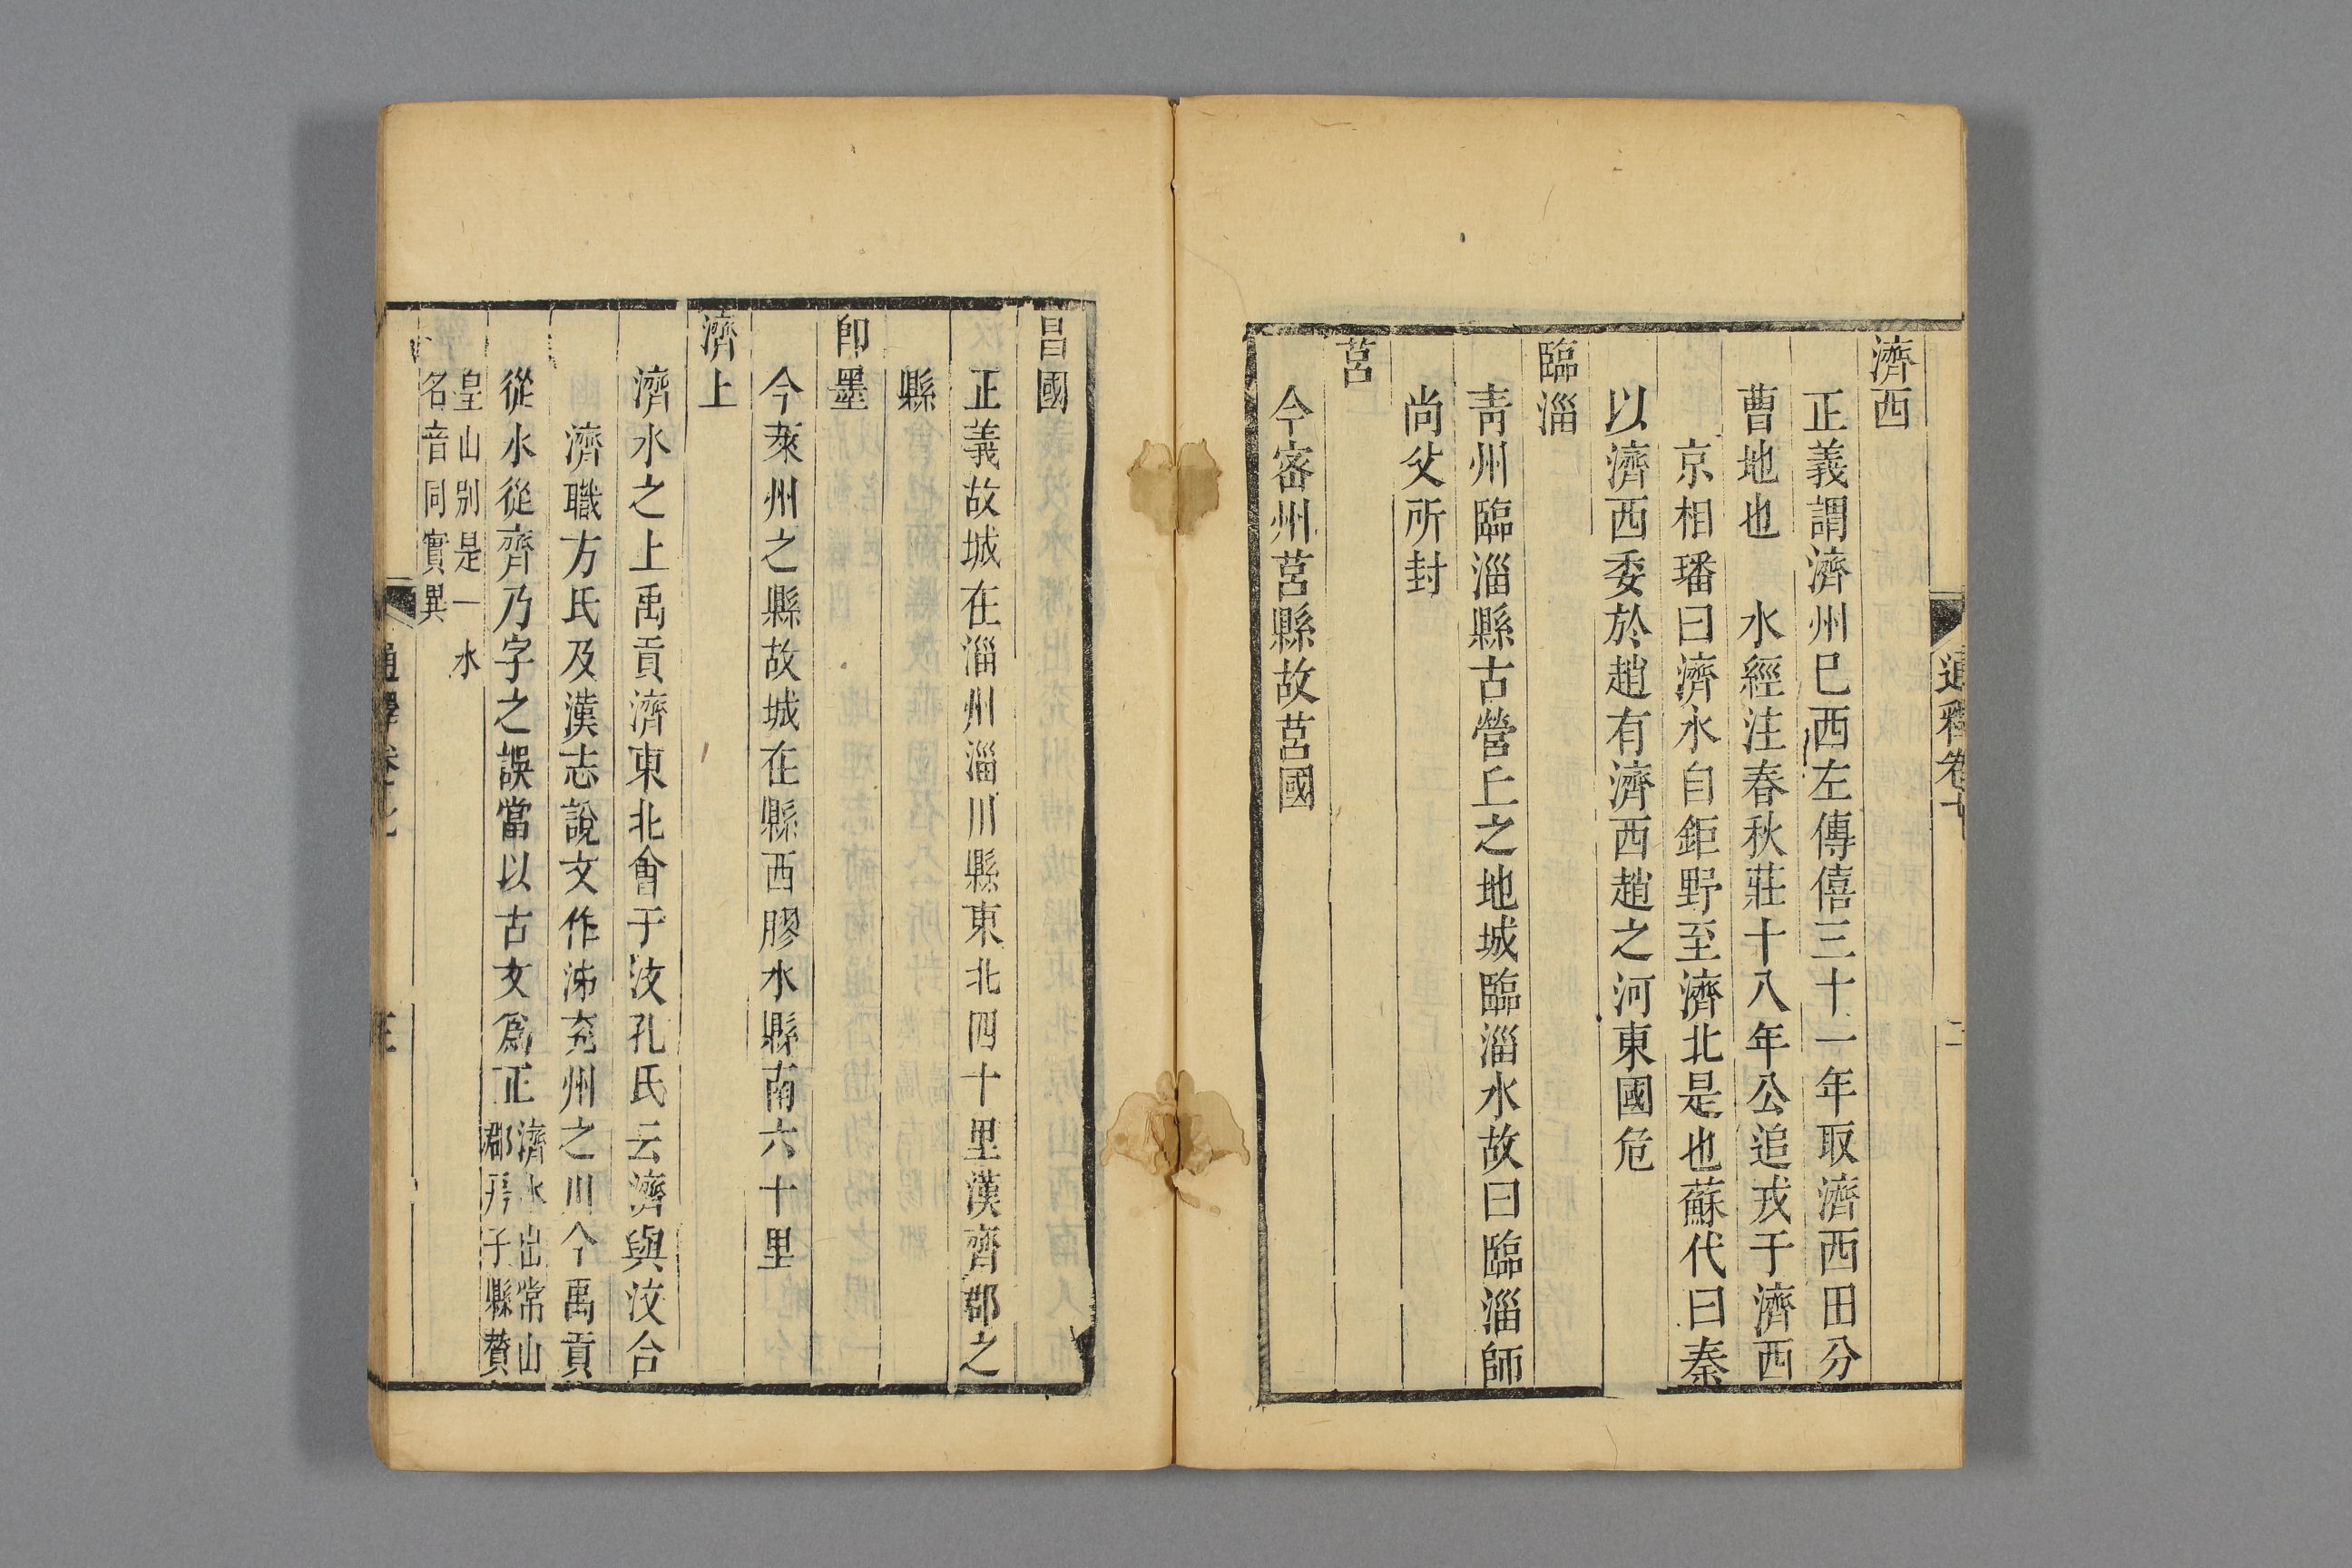 濟西
正義謂濟州巳西左傳僖三十一年取濟西田分
曹地也　水經注春秋莊十八年公追戎于濟西
京相璠曰濟水自鉅野至濟北是也蘇代曰秦
以濟西委於趙有濟西趙之河東國危
臨淄
青州臨淄縣古營丘之地城臨淄水故曰臨淄師
尚父所封
莒
今密州莒縣故莒國
昌國
正義故城在淄州淄川縣東北四十里漢齊郡之
縣
卽墨
今萊州之縣故城在縣西膠水縣南六十里
濟上
濟水之上禹貢濟東北會于汶孔氏云濟與汶合
濟職方氏及漢志說文作泲兗州之川今禹貢
從水從齊乃字之誤當以古文爲正濟水出常山
郡房子縣贊
皇山別是一水
名音同實異
通釋卷十
二
通釋卷
三